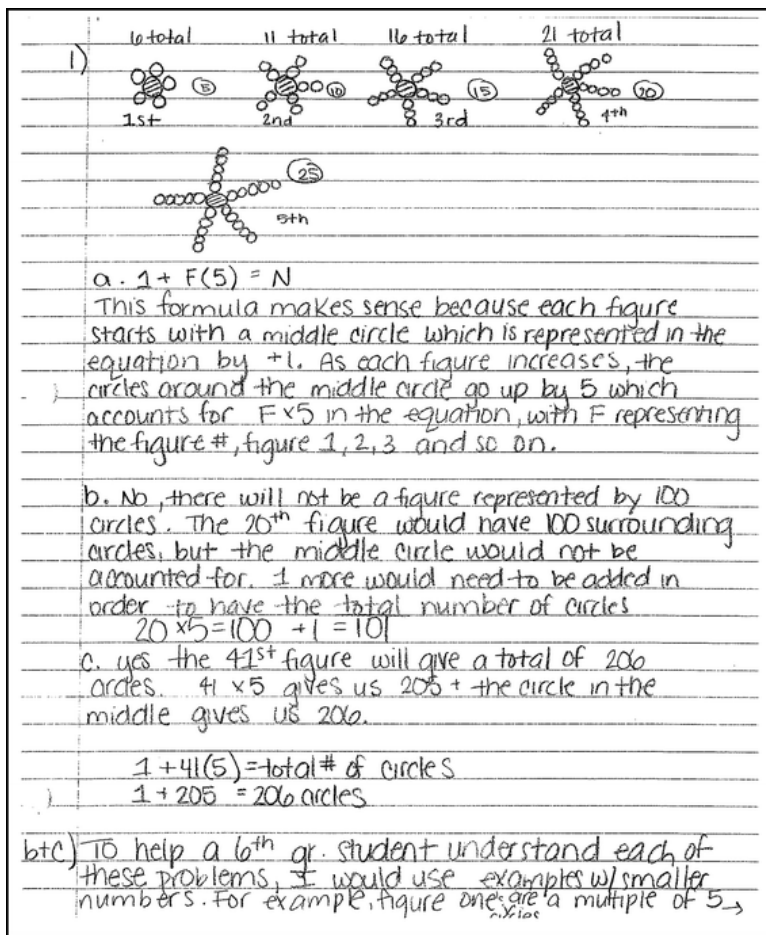 6 total 11 total 16 total 21 total
1)
5 10 15 20
1st 2nd 3rd 4th
25
5th
a. 1 + F(5) = N
This formula makes sense because each figure
starts with a middle circle which is represented in the
equation by +1. As each figure increases, the
circles around the middle circle go up by 5 which
accounts for F x 5 in the equation, with F representing
the figure #, figure 1, 2, 3 and so on.
b. No, there will not be a figure represented by 100
circles. The 20th figure would have 100 surrounding
circles, but the middle circle would not be
accounted for. 1 more would need to be added in
order to have the total number of circles
20 x 5 = 100 + 1 = 101
c. yes the 41st figure will give a total of 206
circles. 41 x 5 gives us 205 + the circle in the
middle gives us 206.
1 + 41(5) = total # of circles
1 + 205 = 206 circles
b+c) To help a 6th gr. student understand each of
these problems, I would use examples w/ smaller
numbers. For example, figure one's are a multiple of 5 →
circles